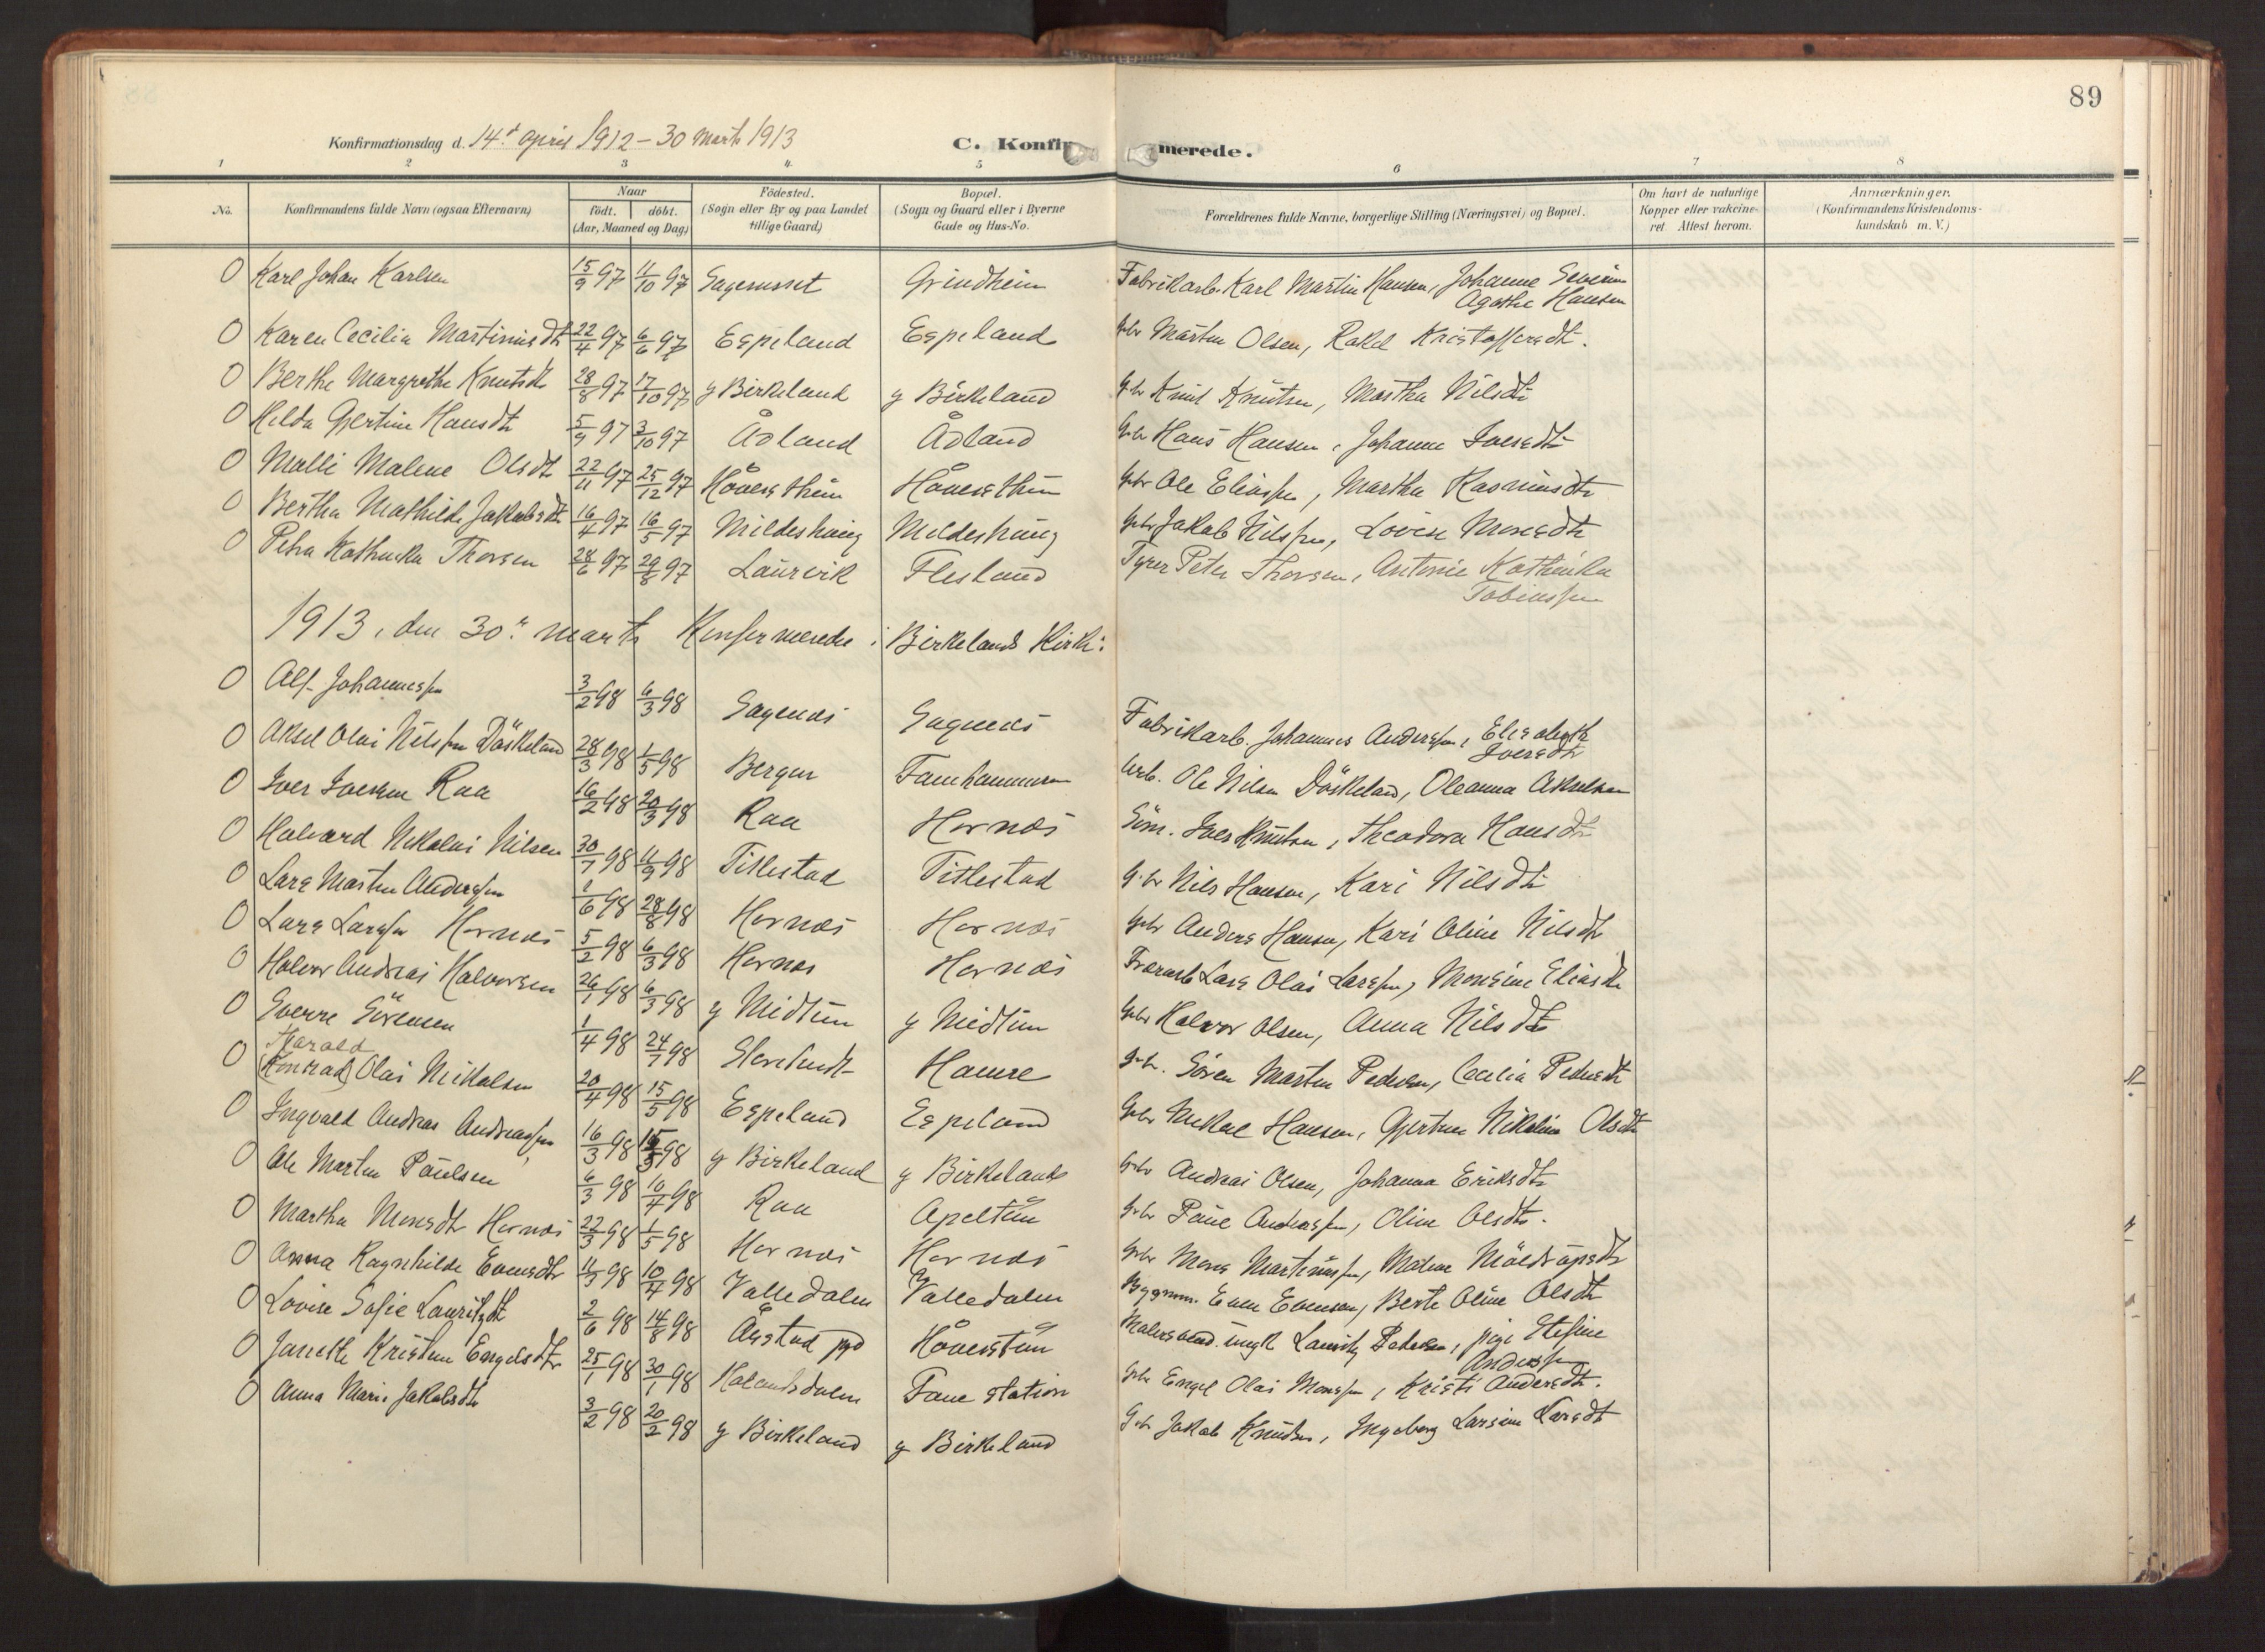 89
Konfirmationsdag d. 14d april 1912 – 30 marts 1913
C. Konfir merede.
1 2 3 4. 5 6 7 8
No. Konfirmandens fulde Navn (ogsaa Efternavn) Naar födt. döbt. (Aar, Maaned og Dag) Födested. (Sogn eller By og paa Landet tillige Gaard) Bopæl. (Sogn og Gaard eller i Byerne Gade og Hus-No. Forældrenes fulde Navne, borgerlige Stilling (Næringsvei) og Bopæl. Om havt de naturlige Kopper eller vakcineret Attest herom. Anmærkninger. (Konfirmandens Kristendomskundskab m. V.)
0 Karl Johan Karlsen 15/9 97 11/10 97 Grindheim Fabrikarb. Karl Martin Hansen, Johanne Severine
Agathe Hansen
0 Karen Cecilia Martinusdt 22/4 97 6/6 97 Espeland Espeland gbr Martin Olsen, Rakel Kristoffersdt.
0 Berthe Margrethe Knutsdt 28/8 97 17/10 97 y Birkeland y Birkeland gbr Knut Knutsen, Martha Nilsdt
0 Hilda Gjertine Hansdt 5/9 97 3/10 97 Ådland Ådland gbr Hans Hansen, Johanne Iversdt
0 Malli Malene Olsdt 22/11 97 25/12 97 Håversthun Håversthun gbr Ole Eliassen, Martha Rasmusdt
0 Bertha Mathilde Jakobsdt 16/4 97 16/5 97 Mildeshaug Mildeshaug gbr Jakob Nilssen, Lovise Monsdt
0 Petra Kathinka Thorsen 28/6 97 29/8 97 Laurvik Flesland Fyrer Peter Thorsen, Antonie Kathinka
Tobiassen
1913, den 30te marts Konfirmerede i Birkelands Kirke:
0 Alf Johannessen 3/2 98 6/3 98 Sagenes Sagenes Fabrikarb. Johannes Anderssen, Elisabeth
Iversdt
0 Aksel Olai Nilssen Döskeland 28/3 98 1/5 98 Bergen Fanehammeren arb. Ole Nilsen Döskeland, Oleanna Akselsen
0 Iver Iversen Raa 16/2 98 20/3 98 Raa Hornæs Söm. Iver Knutsen, Theodora Hansdt
0 Halvard Nikolai Nilsen 30/7 98 11/9 98 Titlestad Titlestad gbr Nils Hansen, Kari Nilsdt
0 Lars Martin Anderssen 2/6 98 28/8 98 Hornæs Hornæs gbr Anders Hansen, Kari Oline Nilsdt
0 Lars Larssen Hornæs 5/2 98 6/3 98 Hornæs Hornæs Lars Olai Larssen, Monsine Eliasdt
0 Halvor Andreas Halvorsen 26/1 98 6/3 98 y Midtun y Midtun gbr Halvor Olsen, Anna Nilsdt
0 Sverre Sörensen 1/4 98 24/7 98 Hamre gbr. Sören Martin Pedersen, Cecilia Pedersdt
Harald
0 (Konrad) Olai Mikalsen 20/4 98 15/5 98 Espeland Espeland gbr Mikal Hansen, Gjertine Nikoline Olsdt
0 Ingvald Andreas Andreassen 16/3 98 15/5 98 y Birkeland y Birkeland gbr Andreas Olsen, Johanna Eriksdt
0 Ole Martin Paulsen 6/3 98 10/4 98 Raa Apeltun gbr Paul Andreassen, Oline Olsdt.
0 Martha Monsdt Hornæs 22/3 98 1/5 98 Hornæs Hornæs gbr Mons Martinussen, Malene
0 Anna Ragnhilde Evensdtr 11/3 98 10/4 98 Valledalen Valledalen Bygnm. Even Evensen, Berte Oline Olsdt
0 Lovise Sofie Lauritzdt 2/6 98 14/8 98 Åstad Håverstun Malersvend ungk Lauritz Pedersen, pige Stefine
Anderssen
0 Janette Kristine Engelsdtr 25/1 98 30/1 98 Fane station gbr Engel Olai Monssen, Kristi Andersdt.
0 Anna Marie Jakobsdt 3/2 98 20/2 98 y Birkeland y Birkeland gbr Jakob Knudsen, Ingeborg Larsine Larsdt